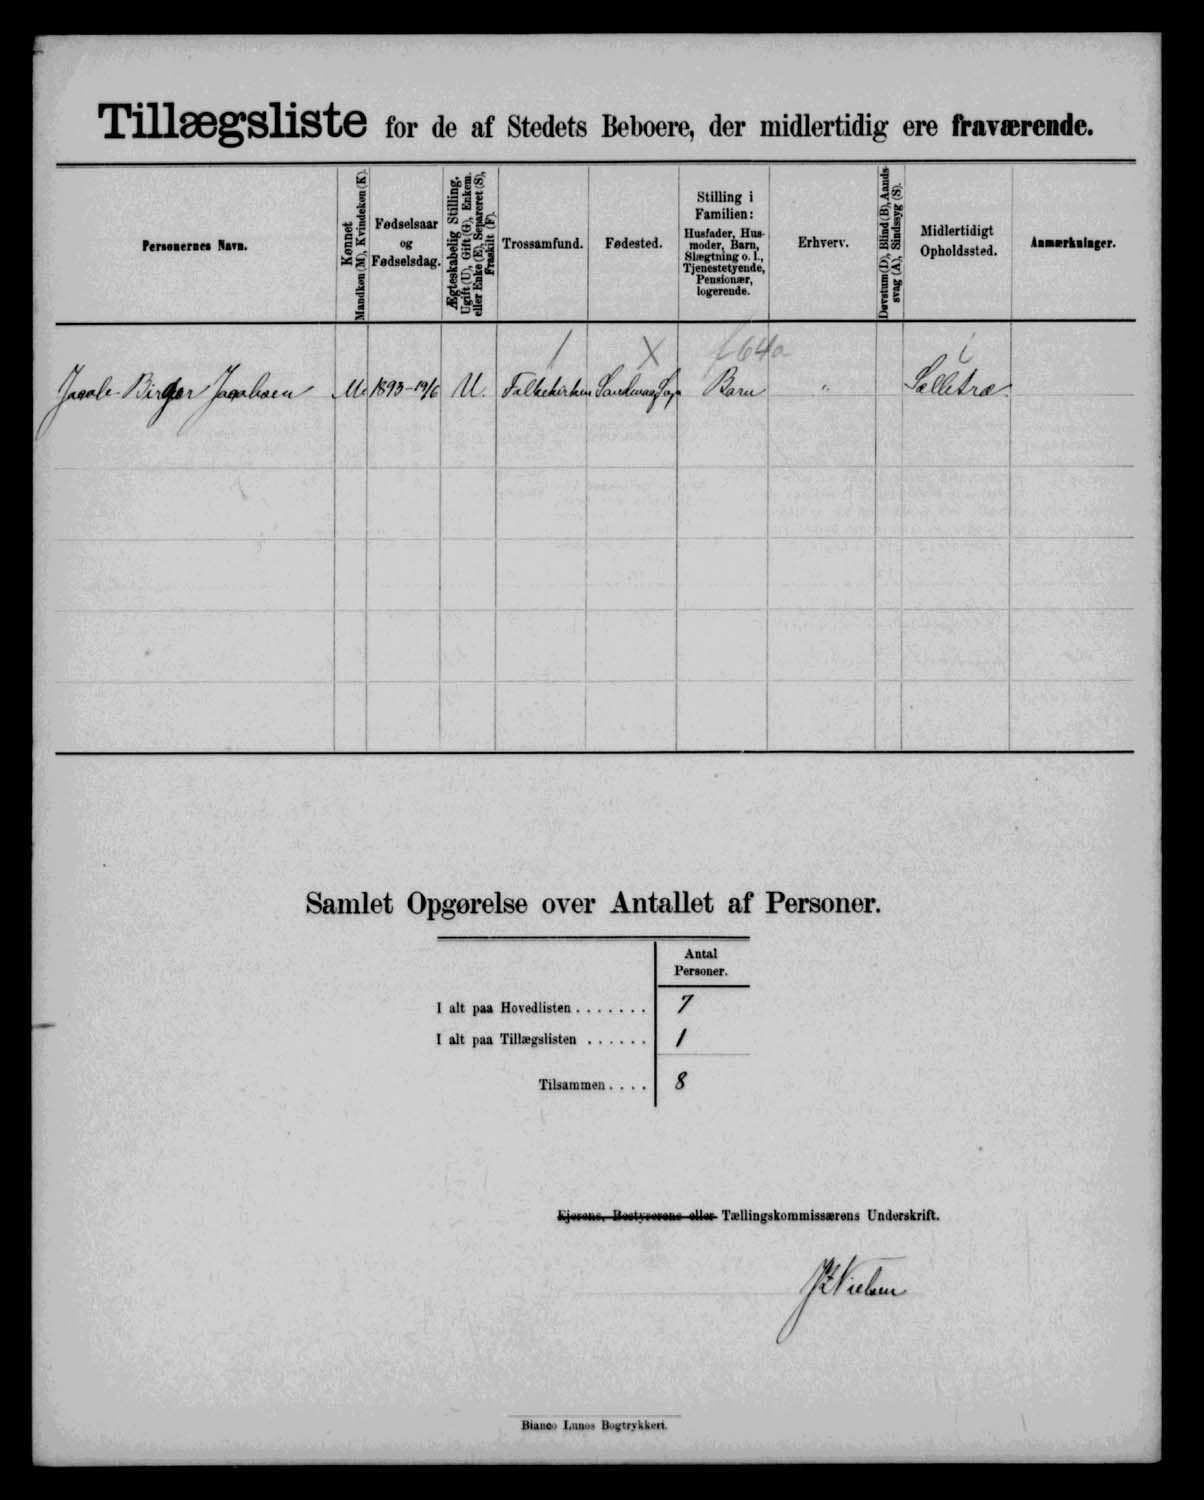 Tillægsliste for de af Stedets Beboere, der midlertidig ere fraværende.
Personernes Navn.
Kønnet
Mandkøn (M), Kvindekøn (K).
Fødselsaar
og
Fødselsdag.
Ægteskabelig Stilling.
Ugift (U), Gift (G), Enkem.
eller Enke (E), Separeret (S),
Fraskilt (F).
Trossamfund.
Fødested.
Stilling i
Familien:
Husfader, Hus-
moder, Barn,
Slægtning o. l.,
Tjenestetyende,
Pensionær,
logerende.
Erhverv.
Døvstum (D), Blind (B), Aands-
svag (A), Sindssyg (S).
Midlertidigt
Opholdssted.
Anmærkninger.
Birger Jacobsen M. 1893-19/6 U. Folkekirken Sandvaag Sogn Barn "
64a
Samlet Opgørelse over Antallet af Personer.
Antal
Personer.
I alt paa Hovedlisten ....... 7
I alt paa Tillægslisten ...... 1
Tilsammen .... 8
Ejerens, Bestyrerens eller Tællingskommissærens Underskrift.
Nielsen
Bianco Lunos Bogtrykkeri.